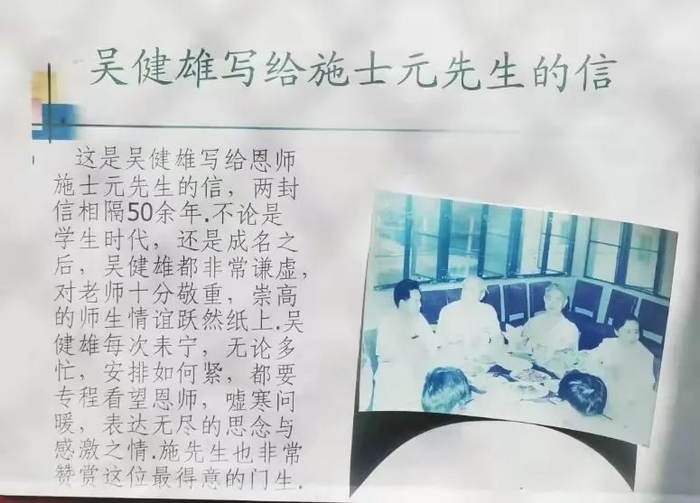 吴健雄写给施士元先生的信
这是吴健雄写给恩师
施士元先生的信，两封
信相隔50余年.不论是
学生时代，还是成名之
后，吴健雄都非常谦虚，
对老师十分敬重，崇高
的师生情谊跃然纸上.吴
健雄每次来宁，无论多
忙，安排如何紧，都要
专程看望恩师，嘘寒问
暖，表达无尽的思念与
感激之情.施先生也非常
赞赏这位最得意的门生.